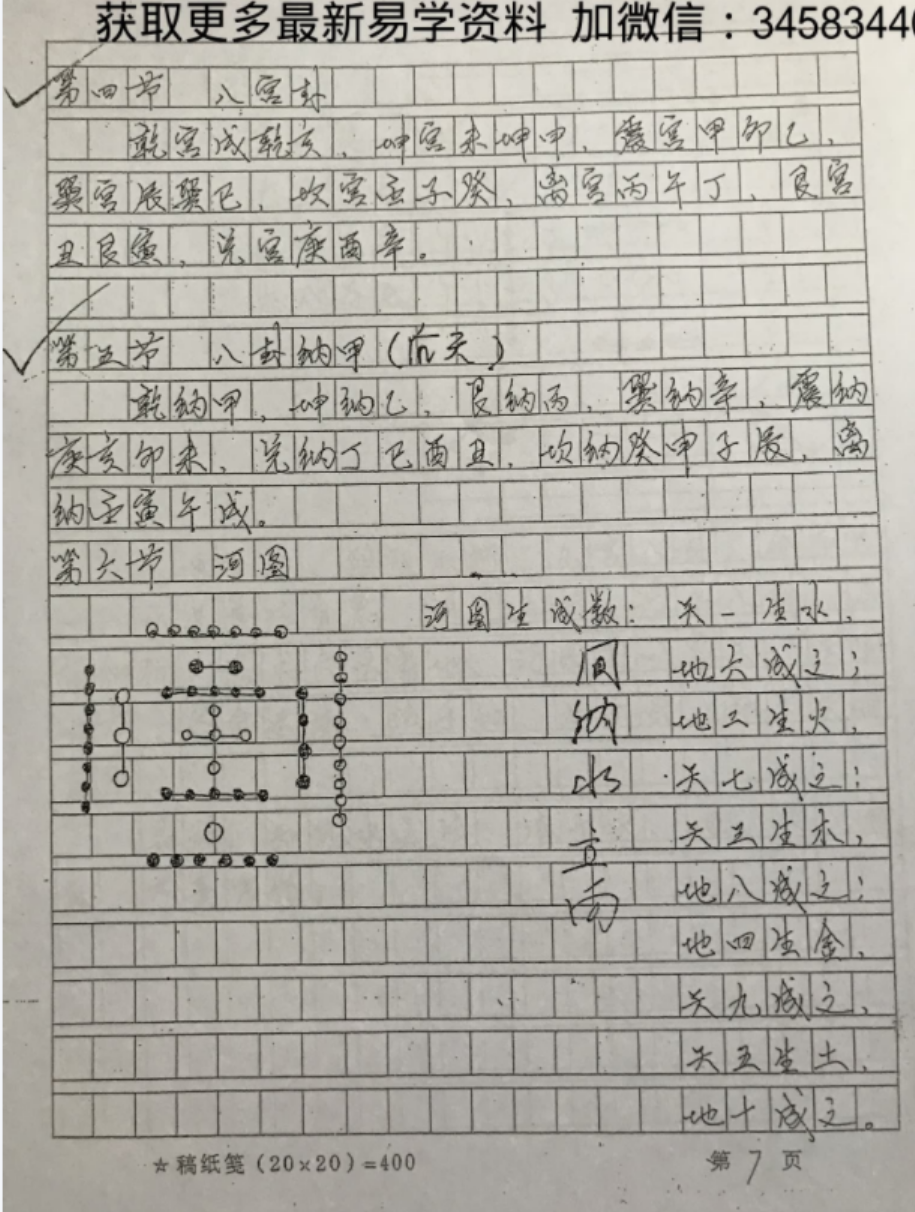 获取更多最新易学资料 加微信：3458344
第四节 八宫卦
乾宫戌乾亥、坤宫未坤申、震宫甲卯乙、
巽宫辰巽巳、坎宫壬子癸、离宫丙午丁、艮宫
丑艮寅、兑宫庚酉辛。
第五节 八卦纳甲(后天)
乾纳甲、坤纳乙、艮纳丙、巽纳辛、震纳
庚亥卯未、兑纳丁巳酉丑、坎纳癸申子辰、离
纳壬寅午戌。
第六节 河图
河图生成数：天一生水、
地六成之；
地二生火、
天七成之；
天三生木、
地八成之；
地四生金、
天九成之、
天五生土、
地十成之。
纳
水
立
向
☆稿纸笺(20×20)=400
第7页